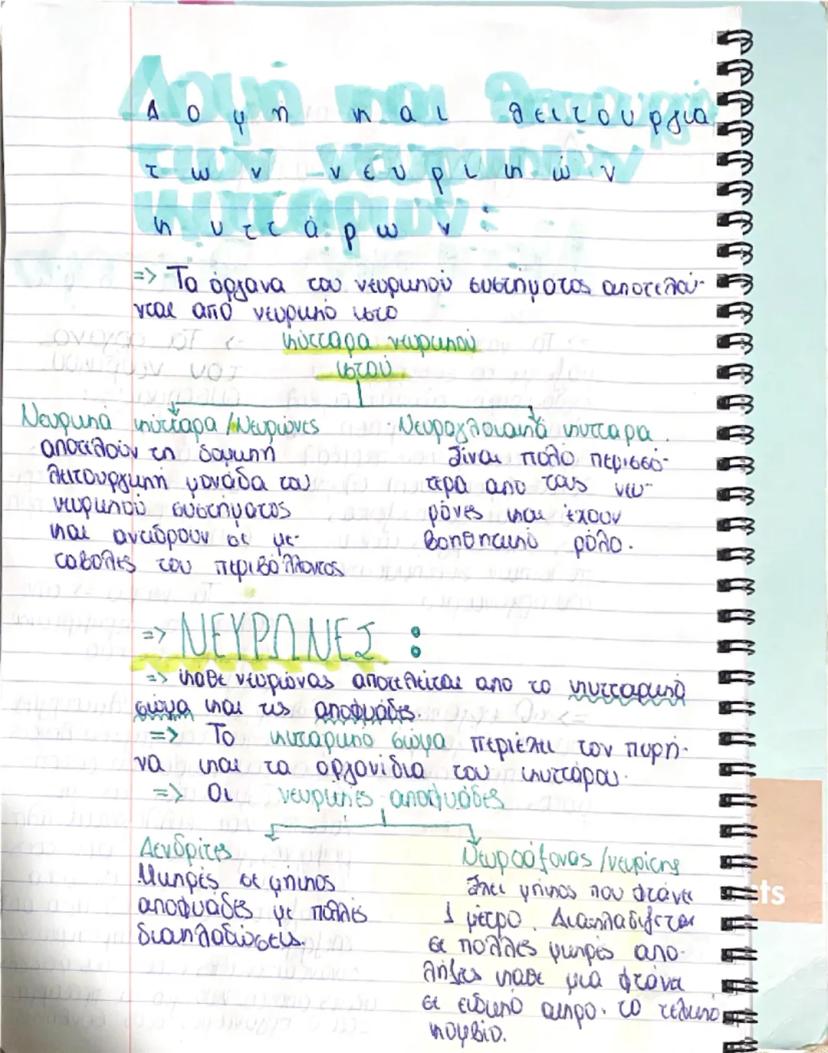 Δομή και λειτουργία
των νευρικών
κυττάρων:
=> Τα όργανα του νευρικού συστήματος αποτελού-
νται από νευρικό ιστό
κύτταρα νευρικού
ιστού
Νευρικά κύτταρα /Νευρώνες
αποτελούν τη δομική
λειτουργική μονάδα του
νευρικού συστήματος
και αντιδρουν σε με-
ταβολές του περιβάλλοντος
Νευρογλοιακά κυτταρα.
Είναι πολύ περισσό-
τερα απο τους νευ-
ρώνες και έχουν
βοηθητικό ρόλο.
=> ΝΕΥΡΩΝΕΣ :
=> καθε νευρώνας αποτελείται απο το κυτταρικό
σώμα και τις αποφυάδες.
=> Το κυταρικό σώμα περιέχει τον πυρή-
να και τα οργανίδια του κυττάρου.
=> Οι νευρικές αποφυάδες
Δενδρίτες
Μικρές σε μήκος
αποφυάδες με πολλές
διακλαδώσεις.
Νευροάξονας /νευρίτης
Έχει μήκος που φτάνει
1 μέτρο. Διακλαδίζεται
σε πολλές μικρές απο-
λήξεις καθε μια φτάνει
σε ειδικό ακρο. το τελικό
κομβίο.
ts